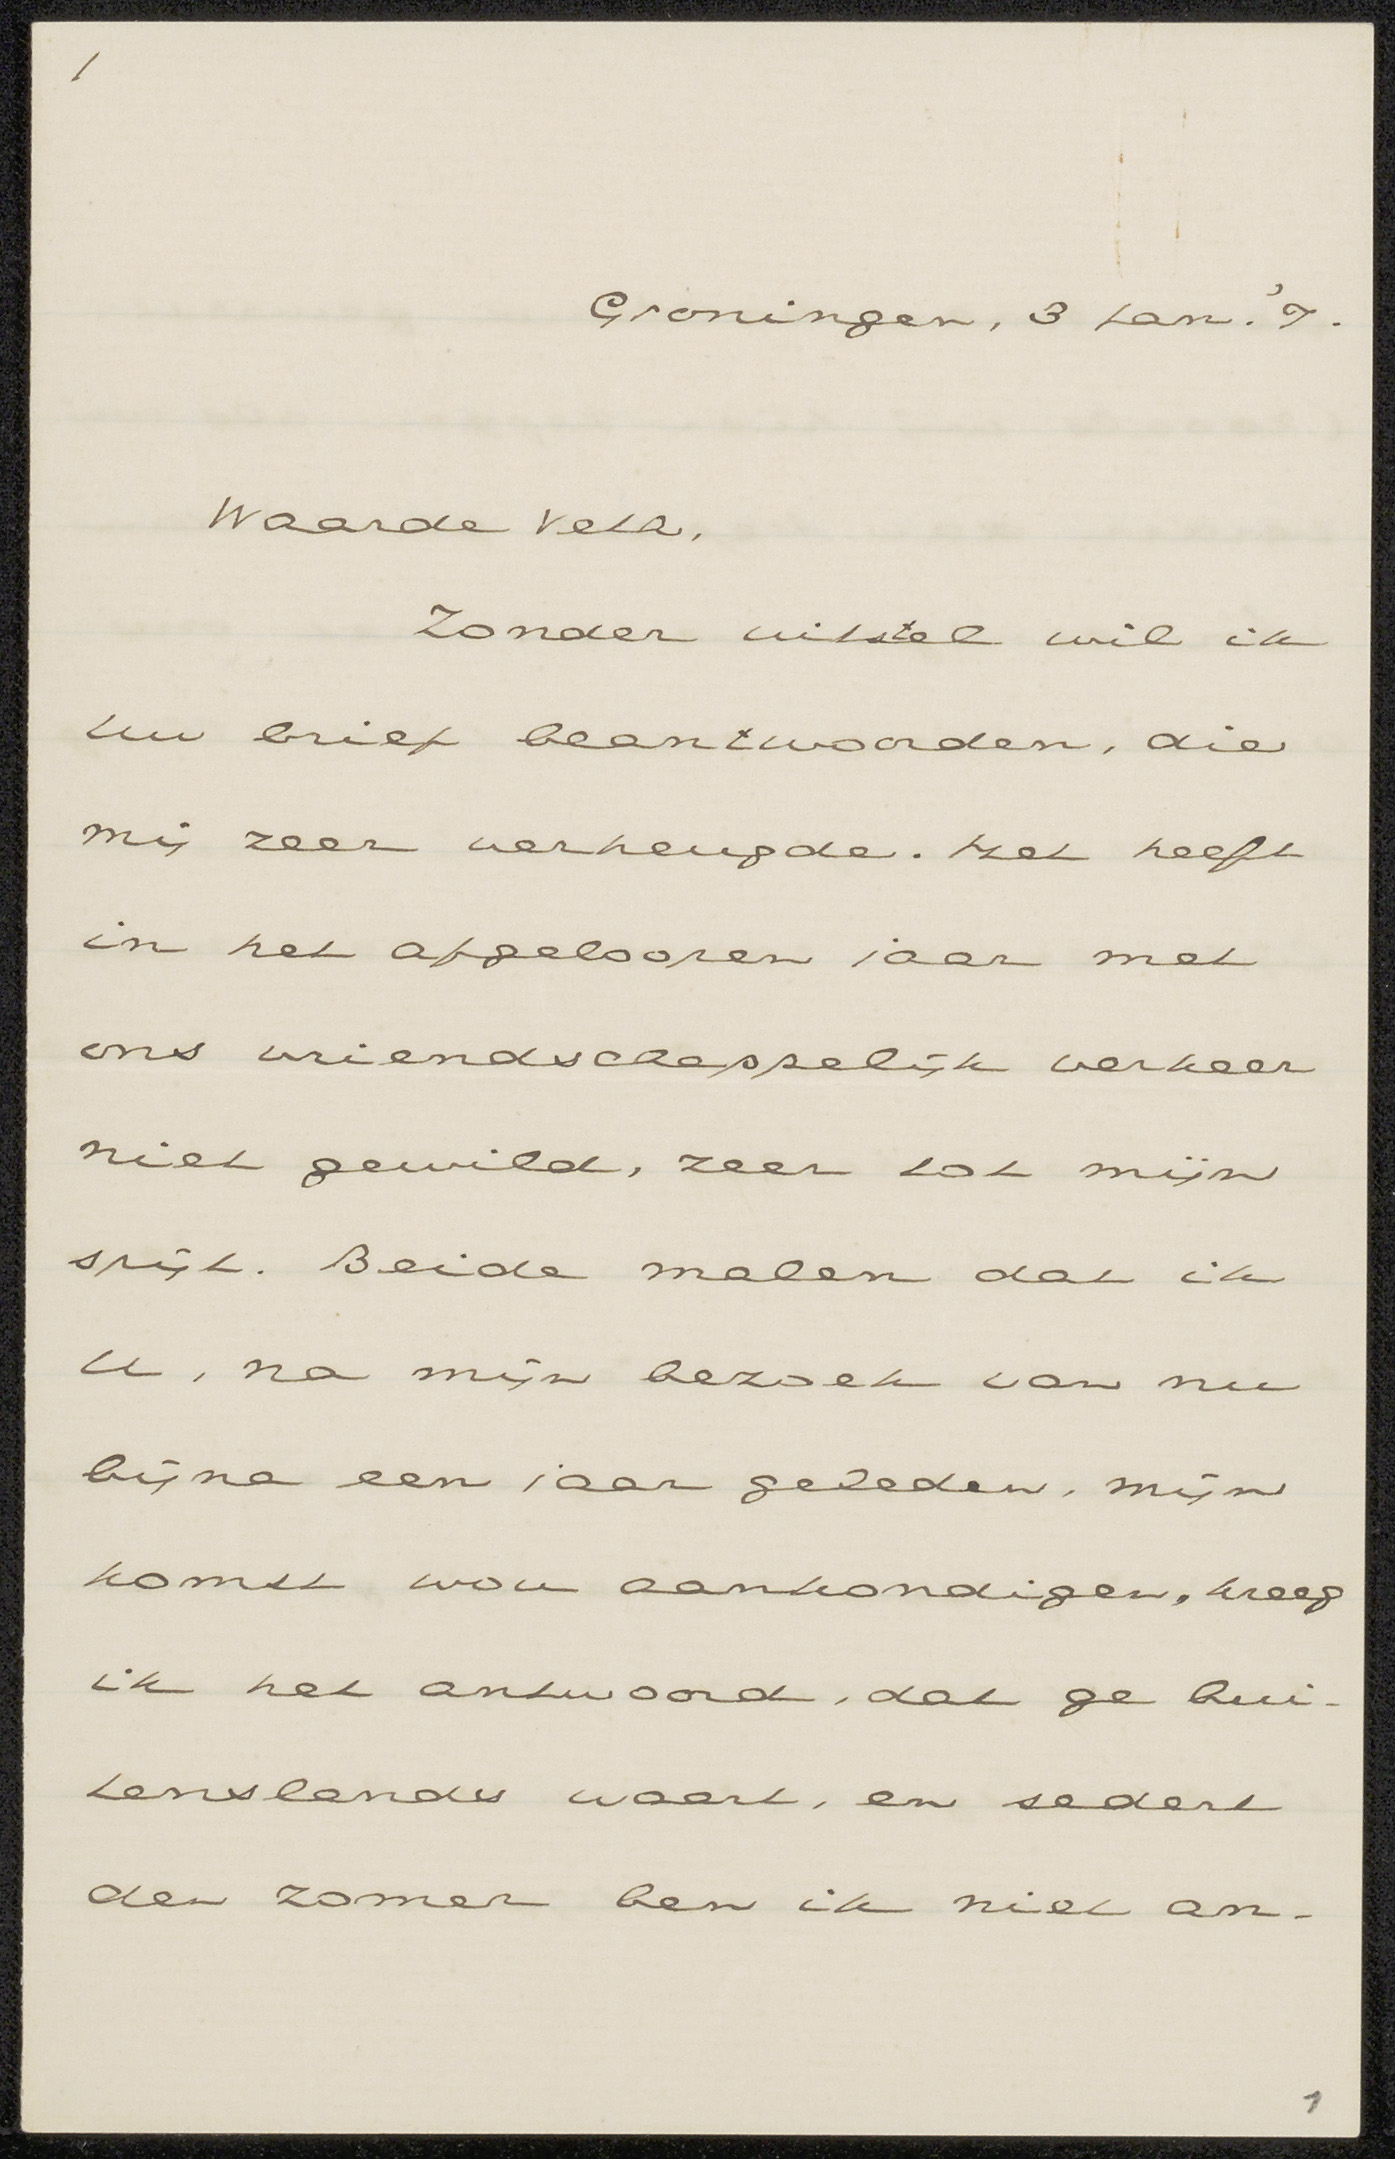 1
Groningen, 3 Jan. '7.
Waarde Veth,
Zonder uitstel wil ik
uw brief beantwoorden, die
mij zeer verheugde. Het heeft
in het afgeloopen jaar met
ons vriendschappelijk verkeer
niet gewild, zeer tot mijn
spijt. Beide malen dat ik
u, na mijn bezoek van nu
bijna een jaar geleden, mijn
komst wou aankondigen, kreeg
ik het antwoord, dat ge bui-
tenslands waart, en sedert
den zomer ben ik niet an-
1